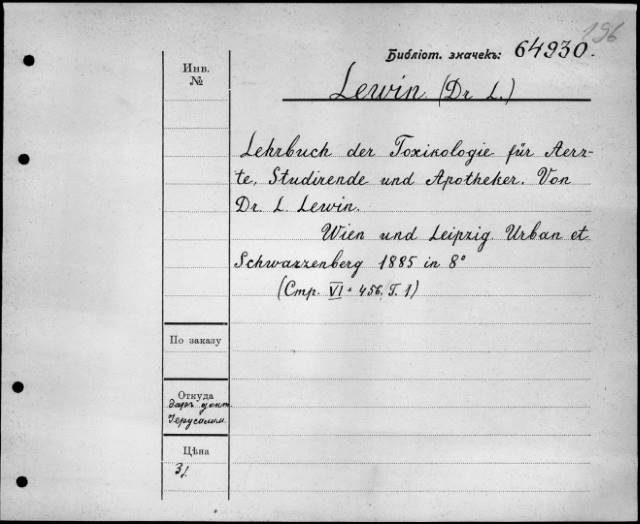 196
Библіот. значекъ: 64930.
Инв.
№
Lewin (Dr L.)
Lehrbuch der Toxikologie für Aerz-
te, Studirende und Apotheker. Von
Dr. L. Lewin.
Wien und Leipzig. Urban et
Schwarzenberg 1885 in 8°
(Стр. VI + 456, T. 1)
По заказу
Откуда
даръ
Іерусалим.
Цѣна
3